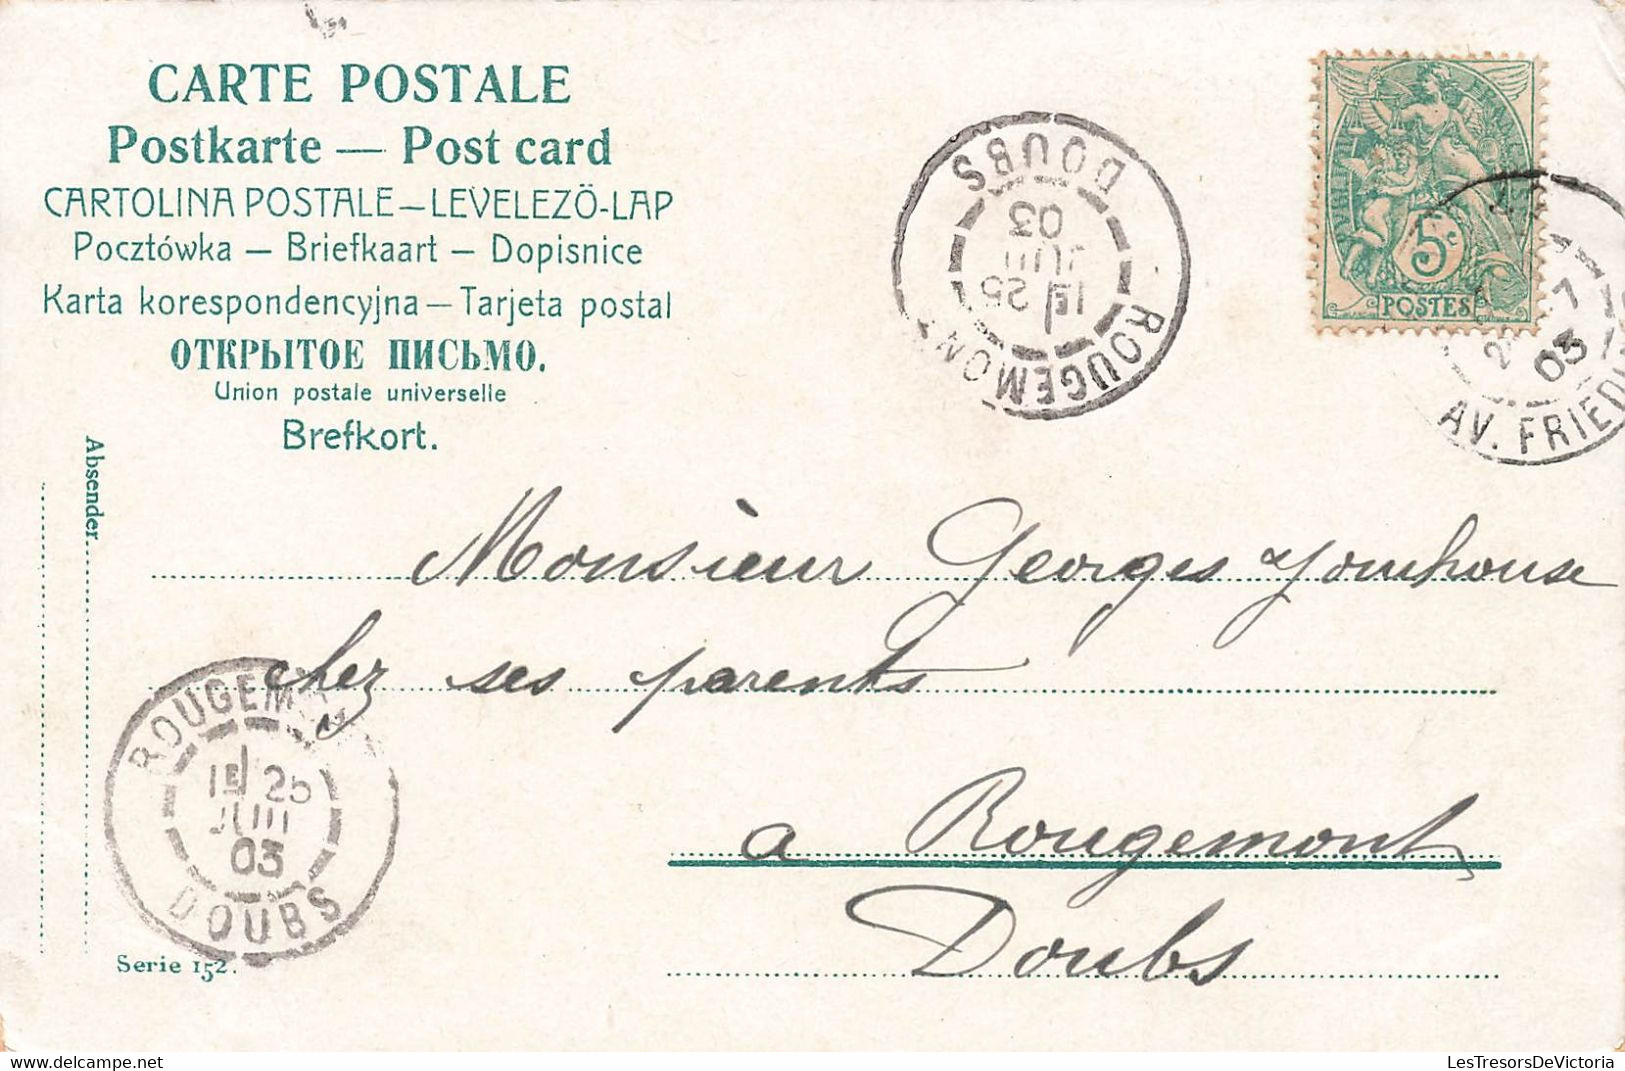 CARTE POSTALE
Postkarte — Post card
CARTOLINA POSTALE — LEVELEZÖ-LAP
Pocztówka — Briefkaart — Dopisnice
Karta korespondencyjna — Tarjeta postal
ОТКРЫТОЕ ПИСЬМО.
Union postale universelle
Brefkort.
Absender.
DOUBS
03
JUIL
1E 25
ROUGEMONT
5c
POSTES
7
03
AV. FRIED
Monsieur Georges
chez ses parents
a Rougemont
Doubs
ROUGEM
1E 25
JUIL
03
DOUBS
Serie 152.
LesTresorsDeVictoria